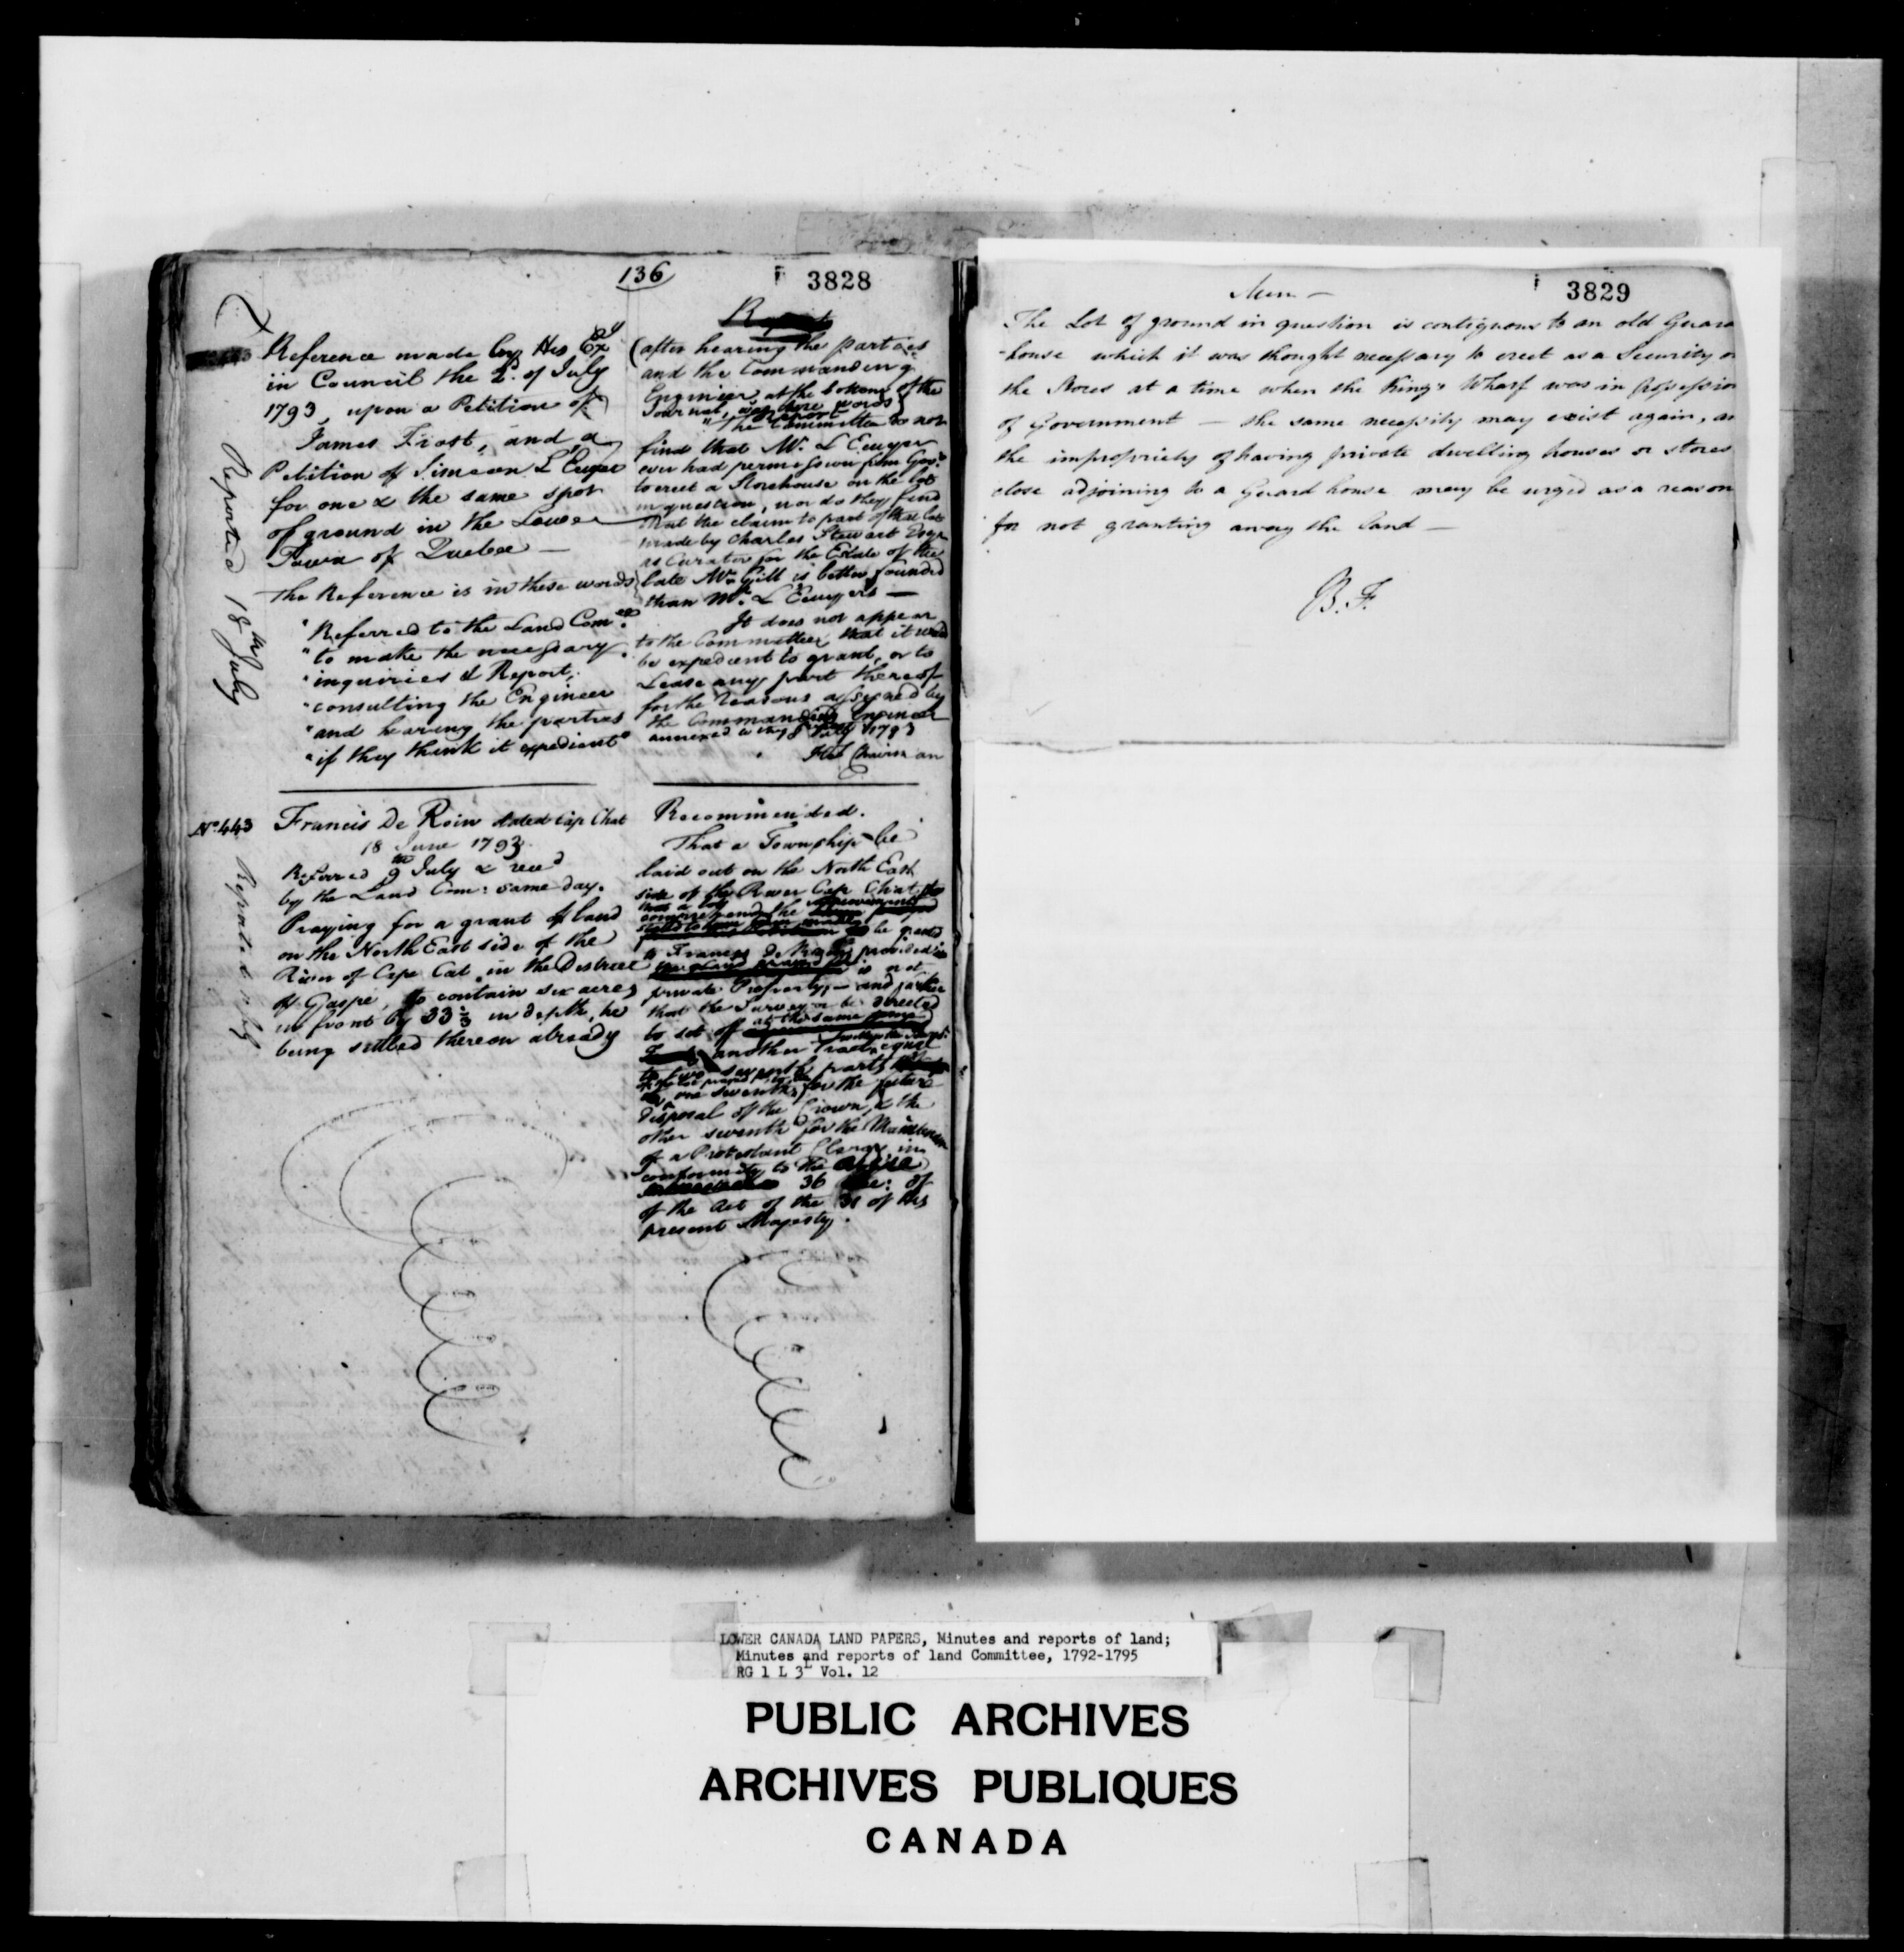 136
3828
Reference made by His Exy
in Council the 2d. of July
1793, upon a Petition of
James Frost, and a
Petition of Simeon L Ecuyer
for one & the same spot
of ground in the Lower
Town of Quebec —
The Reference is in these words
"Referred to the Land Comee.
"to make the necessary
"inquiries & Report,
"consulting the Engineer
"and hearing the parties
"if they think it expedient"
Reported 18th July
Report
(after hearing the parties
and the Commanding
Engineer, at the bottom of the
Journal, these words)
"The Committee do not
find that Mr. L Ecuyer
ever had permission from Govt.
to erect a Storehouse on the lot
in question, nor do they find
that the claim to part of that lot
made by Charles Stewart Esqr
as Curator for the Estate of the
late Mr. Gill is better founded
than Mr. L Ecuyers —
It does not appear
to the Committee that it would
be expedient to grant, or to
Lease any part thereof
for the reasons assigned by
the Commanding Engineer
annexed July 1793
Chairman
No. 443
Francis De Roin dated Cap Chat
18 June 1793.
Referred 9th July & recd
by the Land Com: same day.
Praying for a grant of land
on the North East side of the
River of Cape Cat in the District
of Gaspé, to contain six acres
in front by 33⅓ in depth, he
being settled thereon already
Reported
Recommended.
That a Township be
laid out on the North East
side of the River Cape Chat
comprehend the improvements
be granted
to Francis De provided
is not
private Property, — and further
that the Surveyor be directed
to set off at the same time
another Tract equal
to two seventh parts
one seventh for the future
disposal of the Crown, & the
other seventh for the Maintenance
of a Protestant Clergy in
conformity to the
36 of
of the Act of the 31 of His
present Majesty.
3829
The Lot of ground in question is contiguous to an old Guard
-house which it was thought necessary to erect as a Security
the Stores at a time when the King's Wharf was in possession
of Government — the same necessity may exist again,
the impropriety of having private dwelling houses or stores
close adjoining to a Guard house may be urged as a reason
for not granting away the land —
B. F.
LOWER CANADA LAND PAPERS, Minutes and reports of land;
Minutes and reports of land Committee, 1792-1795
RG 1 L 3L Vol. 12
PUBLIC ARCHIVES
ARCHIVES PUBLIQUES
CANADA